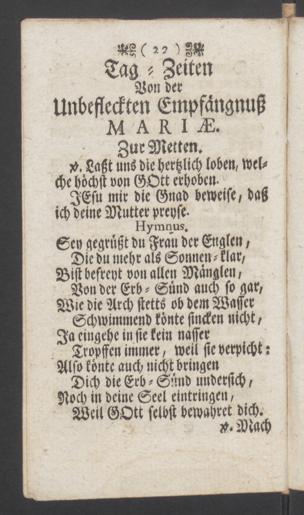 ( 22 )
Tag-Zeiten
Von der
Unbefleckten Empfängnuß
MARIÆ.
Zur Metten.
℣. Laßt uns die hertzlich loben, wel-
che höchst von GOtt erhoben.
JEsu mir die Gnad beweise, daß
ich deine Mutter preyse.
Hymnus.
Sey gegrüßt du Frau der Englen,
Die du mehr als Sonnen-klar,
Bist befreyt von allen Mänglen,
Von der Erb-Sünd auch so gar,
Wie die Arch stetts ob dem Wasser
Schwimmend könte sincken nicht,
Ja eingehe in sie kein nasser
Tropffen immer, weil sie verpicht:
Also könte auch nicht bringen
Dich die Erb-Sünd undersich,
Noch in deine Seel eintringen,
Weil GOtt selbst bewahret dich.
℣. Mach